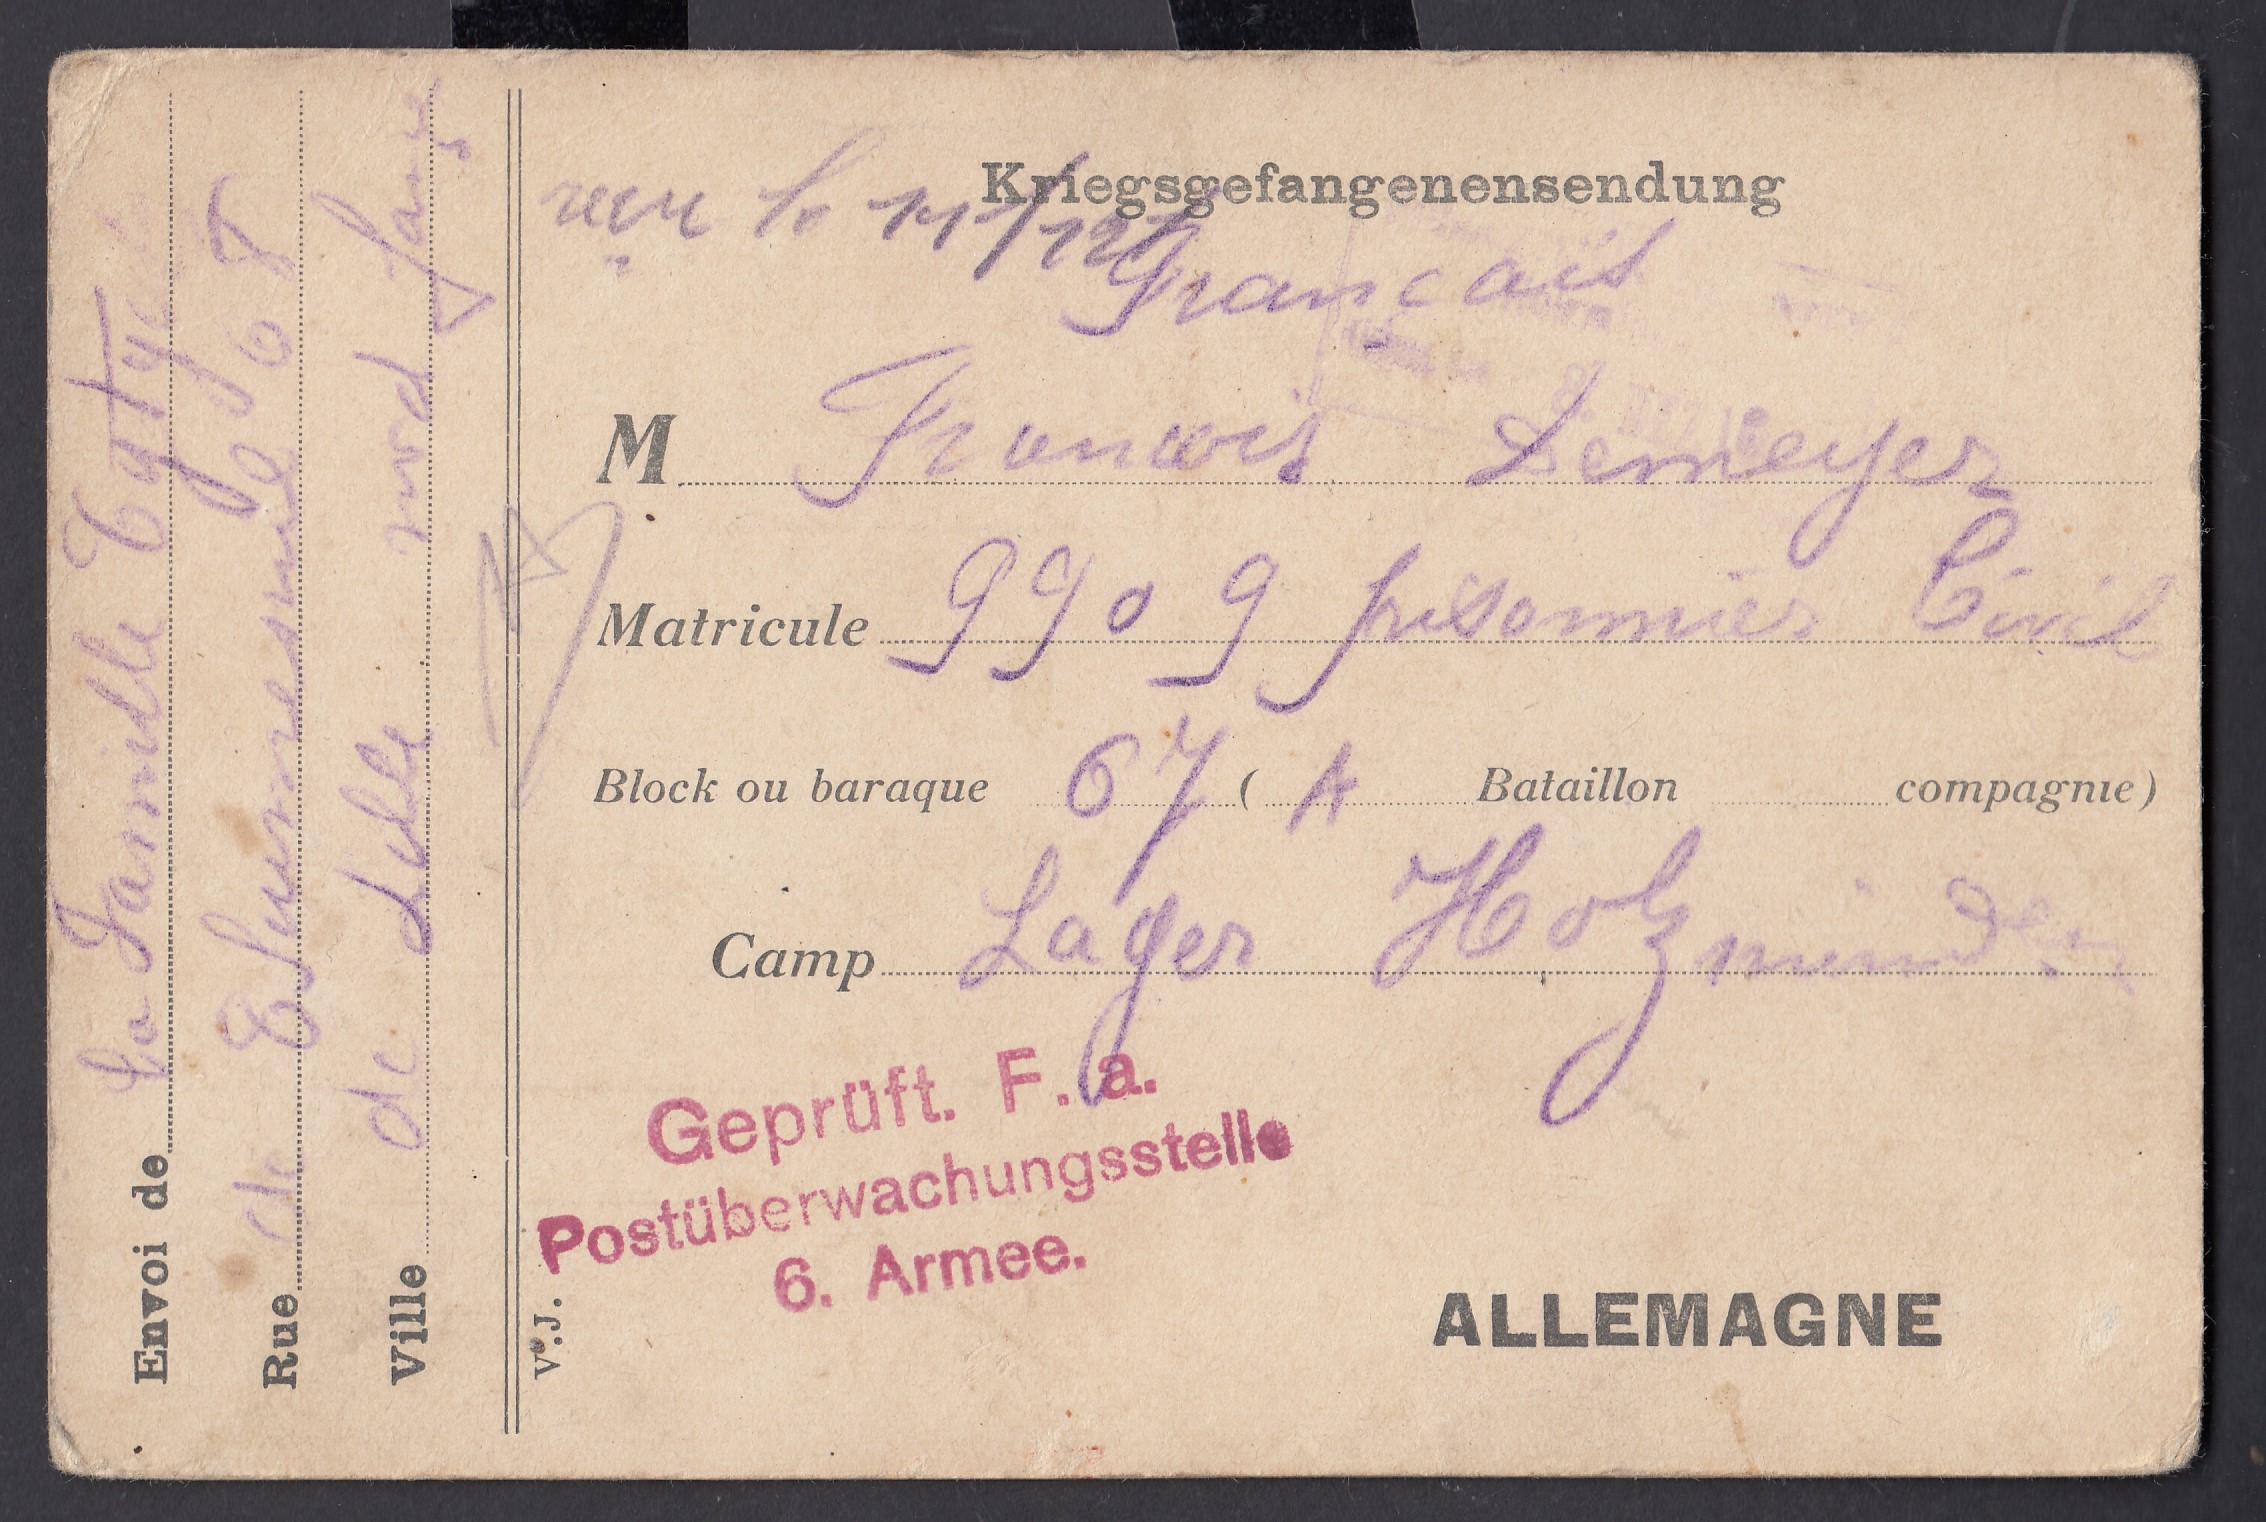 Kriegsgefangenensendung
reçu le 11/12
Français
M Francois Demeyer
Matricule 9909 prisonnier Civil
Block ou baraque 67 ( A Bataillon compagnie)
Camp Lager Holzminden
Geprüft. F. a.
Postüberwachungsstelle
6. Armee.
ALLEMAGNE
V.J.
Envoi de La Famille
Rue de
Ville de Lille nord